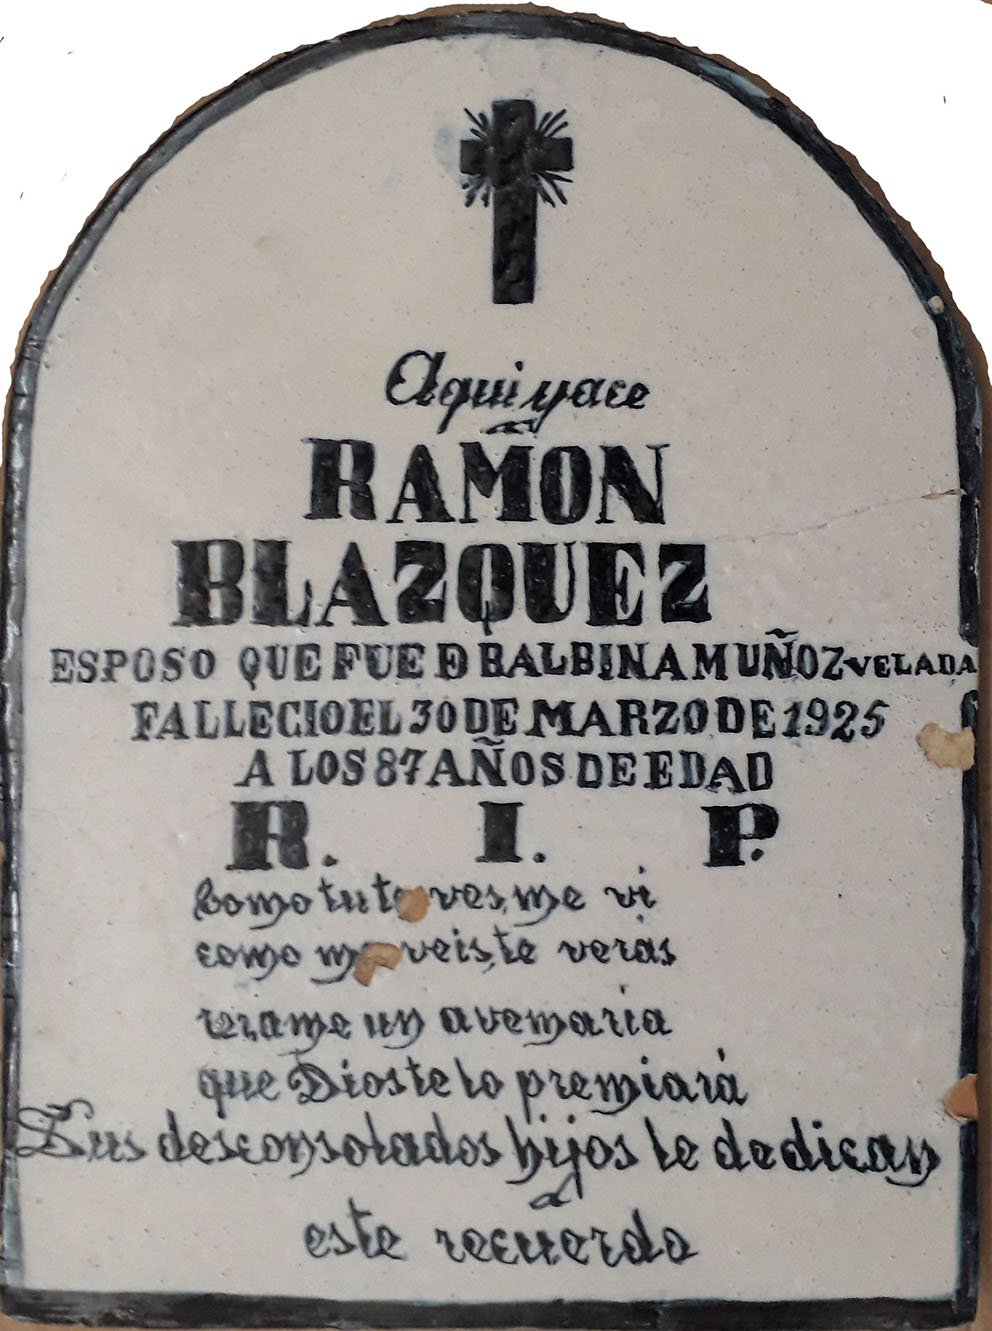 Aqui yace
RAMON
BLAZQUEZ
ESPOSO QUE FUE D BALBINA MUÑOZ VELADA
FALLECIO EL 30 DE MARZO DE 1925
A LOS 87 AÑOS DE EDAD
R. I. P.
Como tu te ves, me vi
como me veis, te verás
rezame un avemaria
que Dios te lo premiará
Sus desconsolados hijos le dedican
este recuerdo